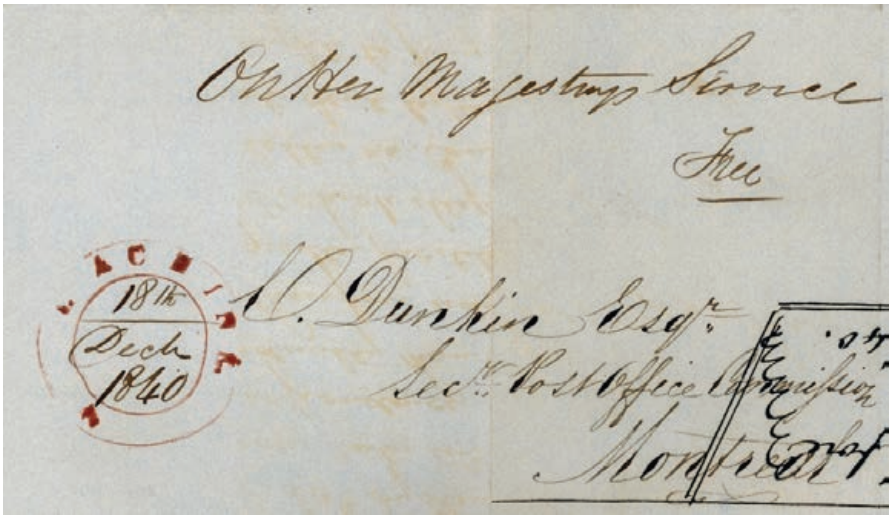 On Her Magestys Service
Free
LACHINE
18th
Dech
1840
C. Dunkin Esqr.
Secry. Post Office Commission
Montreal